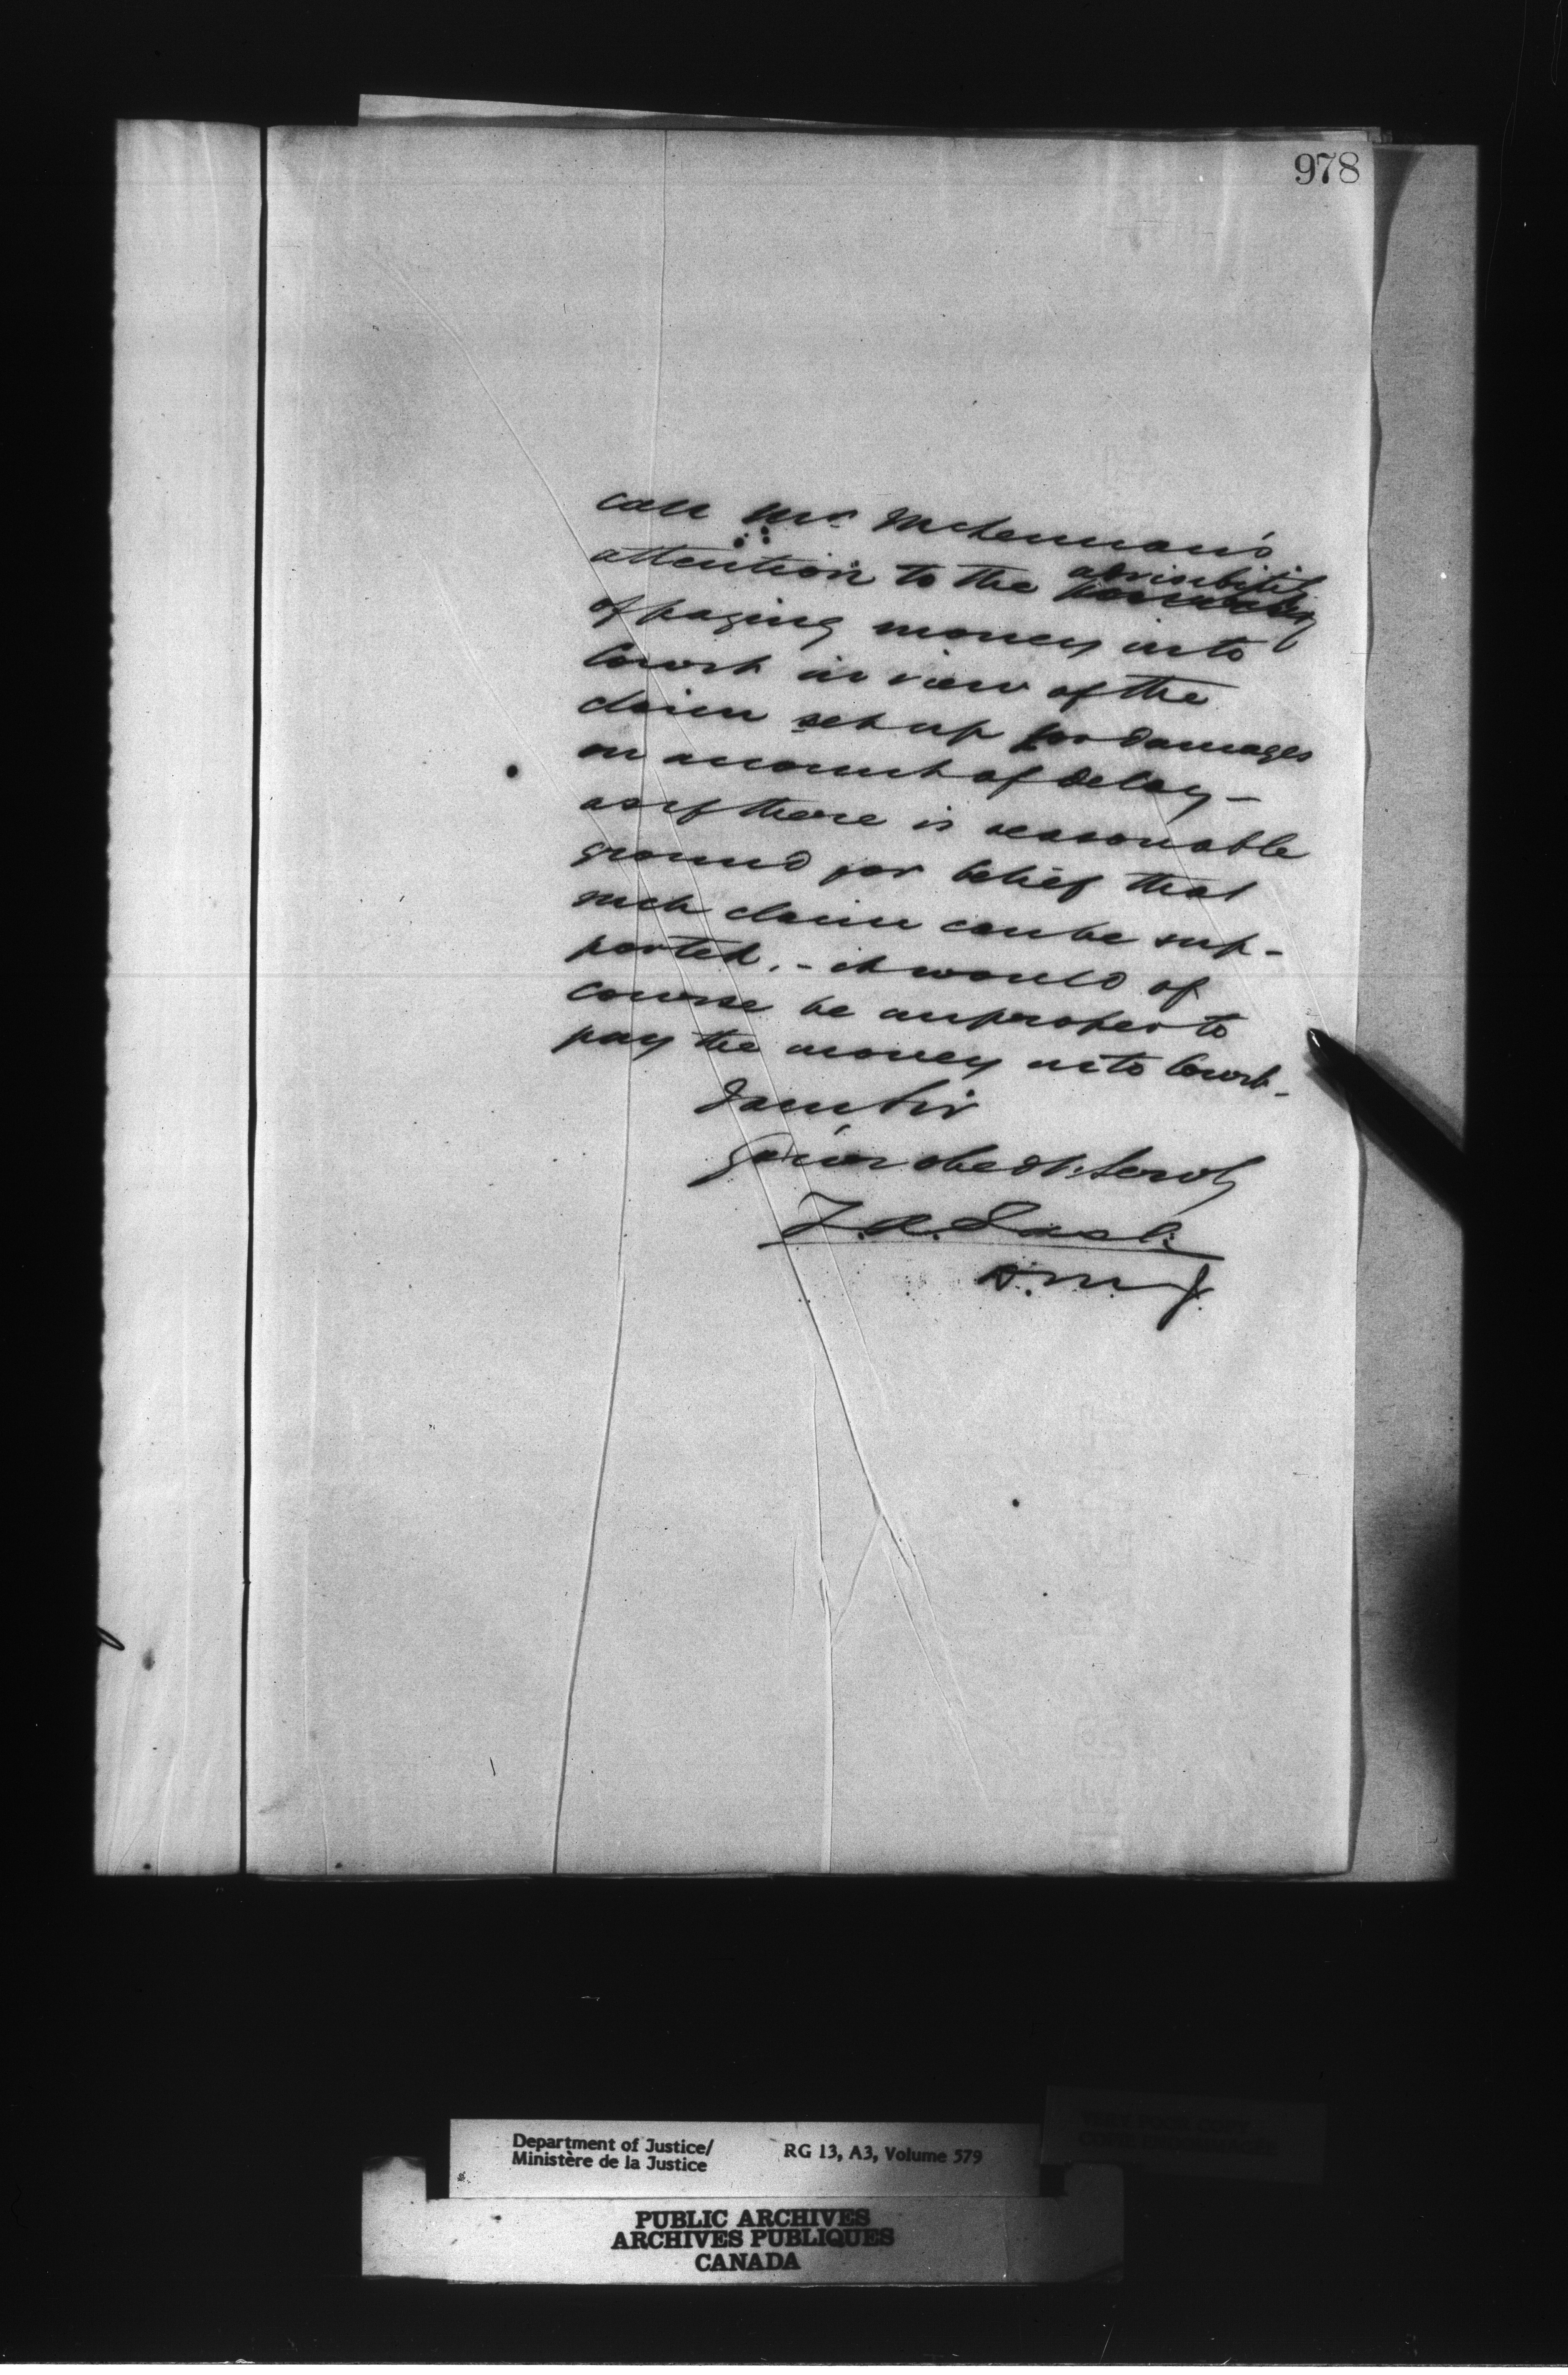 978
call Mr. McLennan's
attention to the advisability
of paying money into
Court in view of the
claim set up for damages
on account of delay –
as if there is reasonable
ground for belief that
such claim can be sup-
ported. – it would of
course be improper to
pay the money into Court –
I am Sir
Your obedt. Servt
Z.A. Lash
D.M.J.
Department of Justice/ RG 13, A3, Volume 579
Ministère de la Justice
PUBLIC ARCHIVES
ARCHIVES PUBLIQUES
CANADA